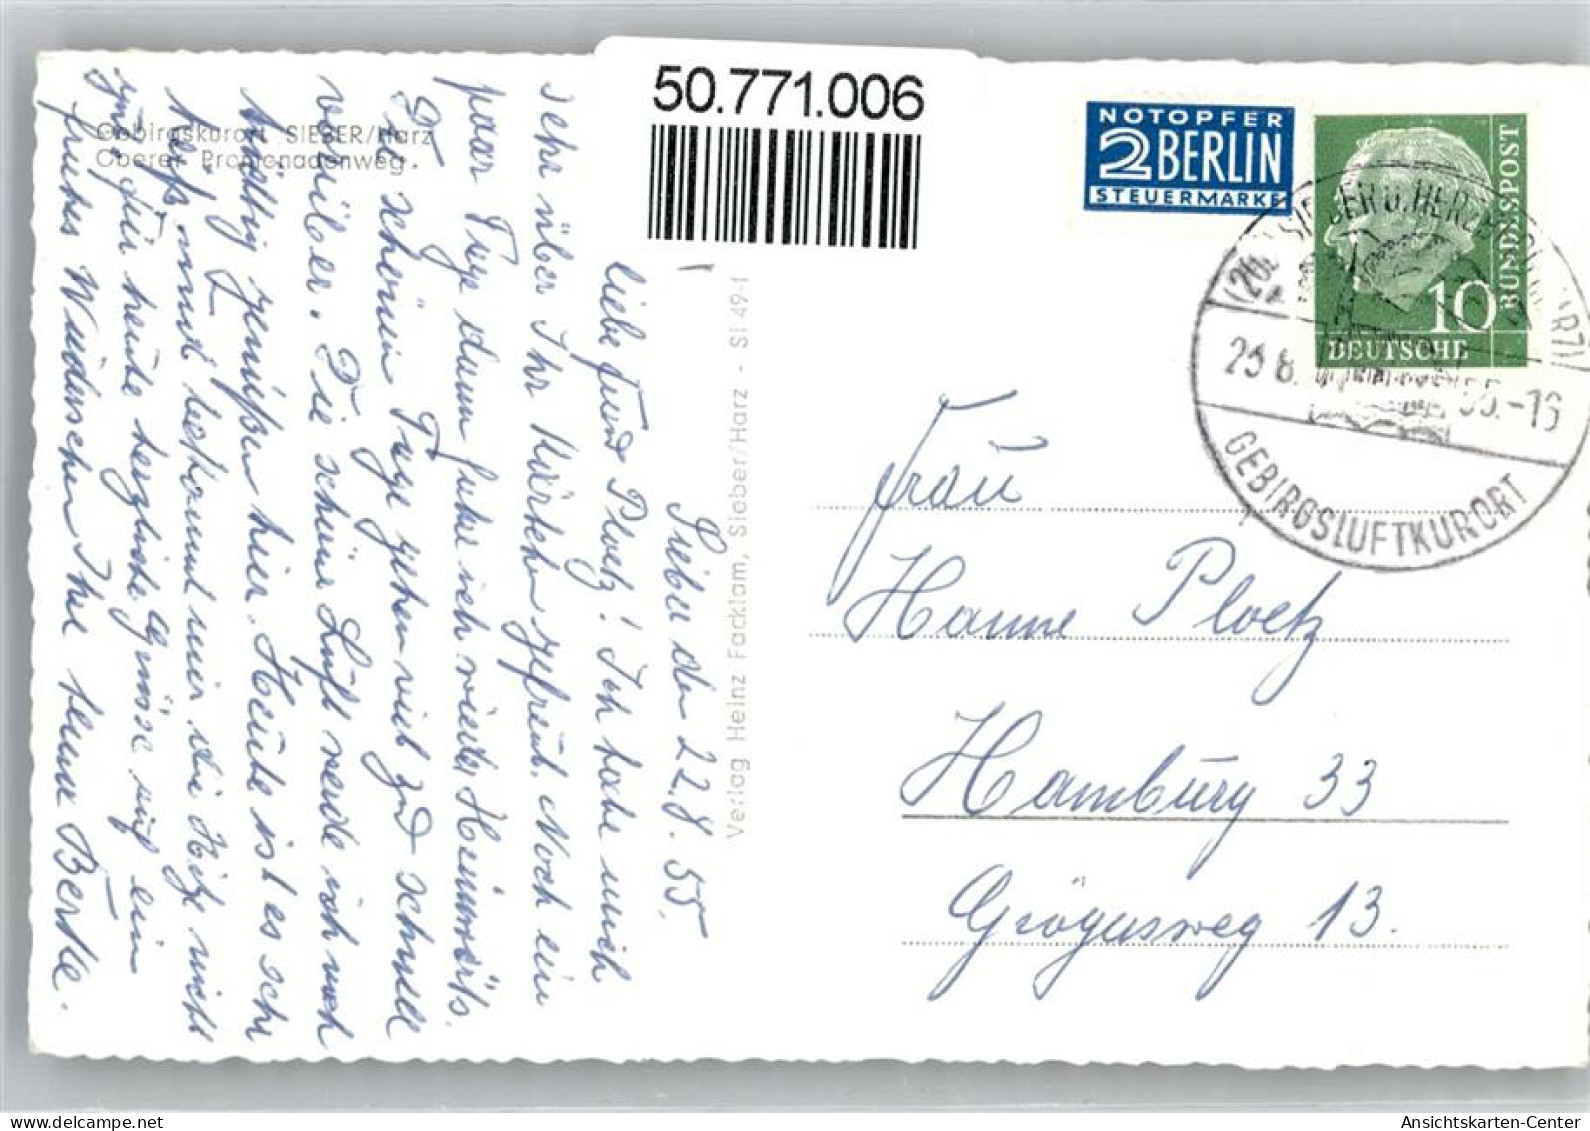 50.771.006
NOTOPFER
2 BERLIN
STEUERMARKE
BUNDESPOST
10
DEUTSCHE
SIEBER Ü. HERZBERG (HARZ)
55.-16
GEBIRGSLUFTKURORT
Gebirgskurort SIEBER/Harz
Oberer Promenadenweg.
Verlag Heinz Facklam, Sieber/Harz - Si 49-1
Sieber den 22.8.55.
Liebe Frau Ploetz! Ich habe mich
sehr über Ihr Kärtchen gefreut. Noch ein
paar Tage dann fahre ich wieder Heimwärts.
Die schönen Tage gehen viel zu schnell
vorüber. Die schöne Luft werde ich noch
kräftig genießen hier. Heute ist es sehr
heiß mir bekommt die Hitze nicht
gut für heute herzliche Grüsse auf ein
frohes Wiedersehen Ihre Berke.
Frau
Hanne Ploetz
Hamburg 33
Grögersweg 13.
Ansichtskarten-Center